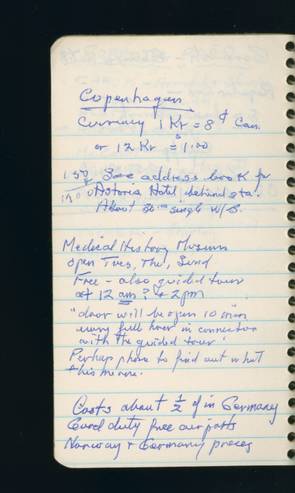 Copenhagen
Currency 1 Kr = 8¢ Can.
or 12 Kr = $1.00
See address book for
Astoria Hotel behind sta.
About single W/S.
Medical History Museum
open Tues, Thu, Sund
Free - also guided tour
at 12 am? & 2 pm
"door will be open 10 min
every full hour in connection
with the guided tour"
Perhaps phone to find out what
this means.
Costs about 1/2 of in Germany
Good duty free airports
Norway & Germany prices